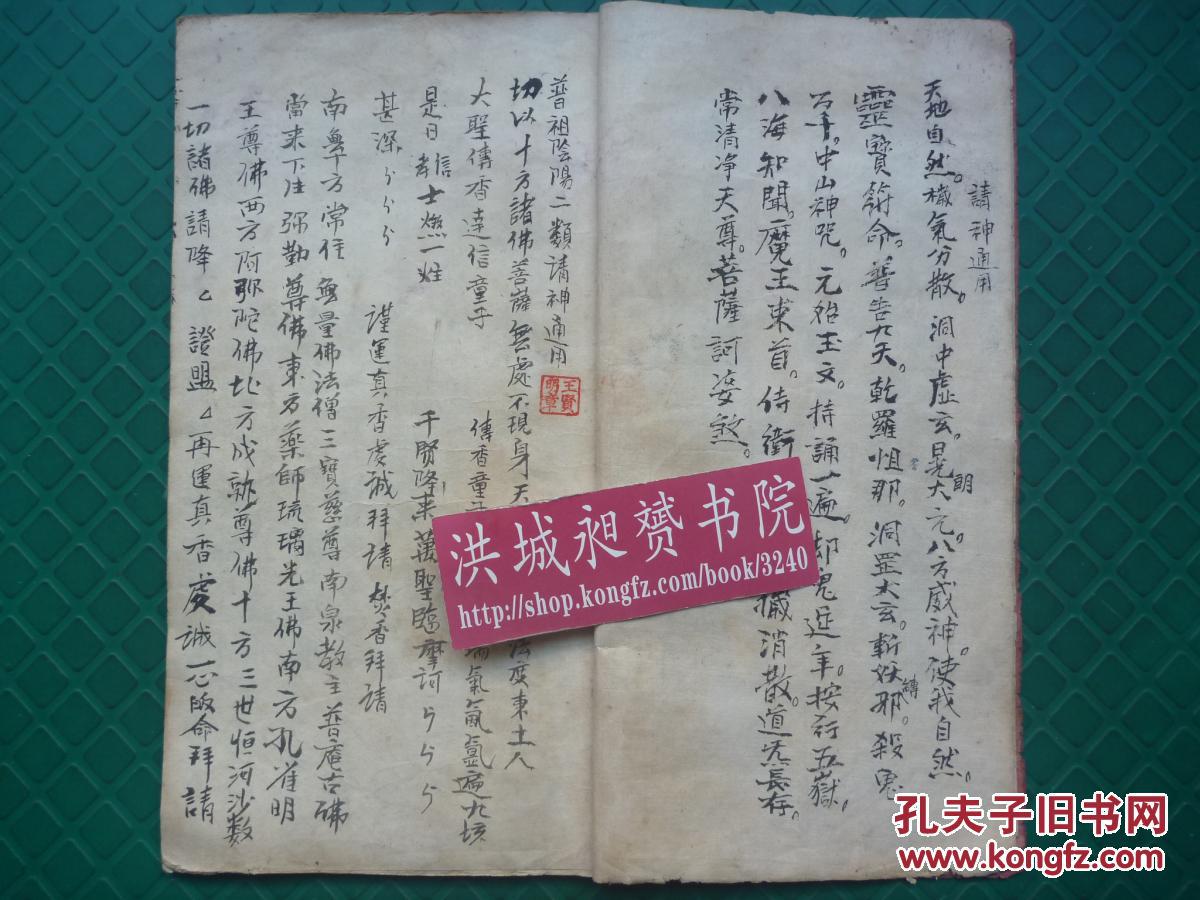 請神通用
天地自然。穢氣分散。洞中虛玄。晃朗大元。八方威神。使我自然。
靈寶符命。普告九天。乾羅怛那。洞罡太玄。斬妖縛邪。殺鬼
万千。中山神咒。元始玉文。持誦一遍。却鬼延年。按行五嶽。
八海知聞。魔王束首。侍衛 穢消散。道炁長存。
常清净天尊。菩薩訶婆煞。
普祖陰陽二類請神通用
王賢明章
切以十方諸佛菩薩無處不現身天 法度東土人
大聖傳香達信童子 傳香童子 瑞氣氤氳遍九垓
是日 信士燃一炷 千賢降來萬聖臨摩訶
甚深 謹運真香虔誠拜請 焚香拜請
南無十方常住無量佛法僧三寶慈尊南泉教主普庵古佛
當來下生弥勒尊佛東方藥師琉璃光王佛南方孔雀明
王尊佛西方阿弥陀佛北方成就尊佛十方三世恒河沙数
一切諸佛請降 證盟 再運真香虔誠一心皈命拜請
洪城昶赟书院
http://shop.kongfz.com/book/3240
孔夫子旧书网
www.kongfz.com